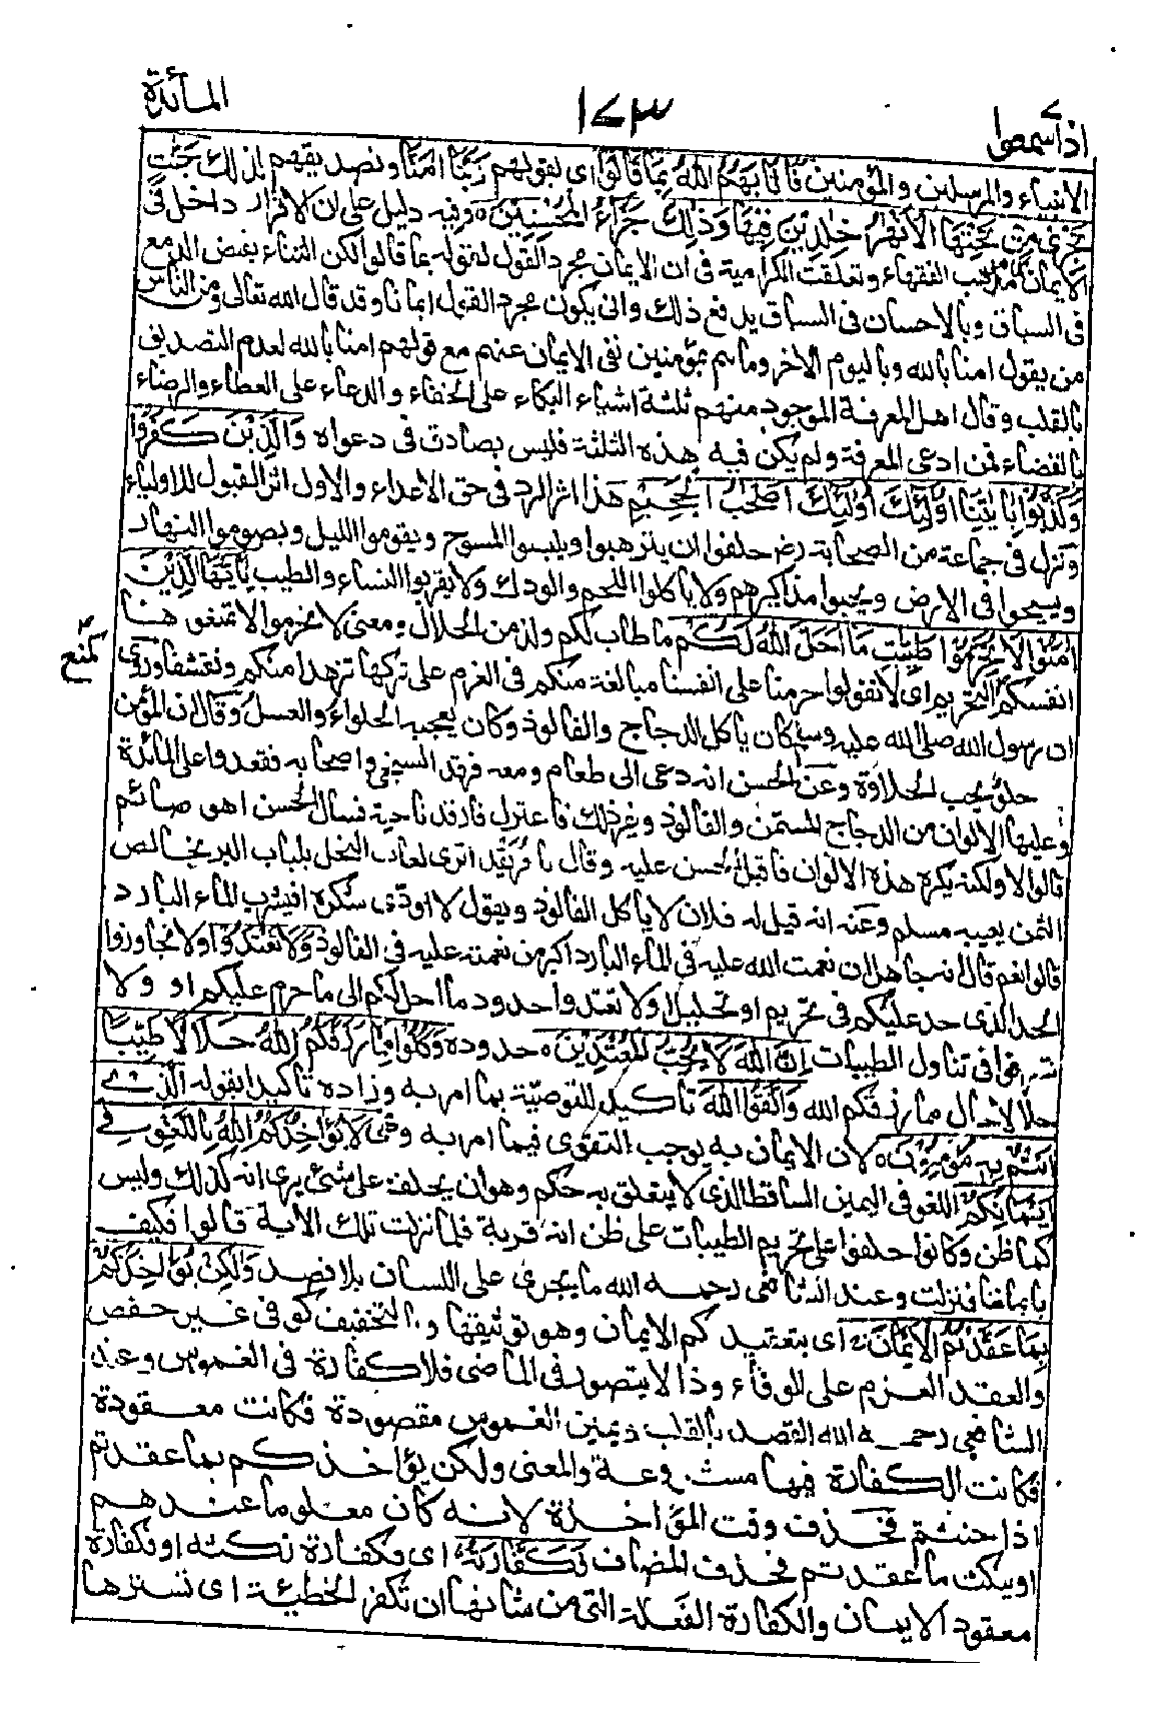 المائدة
١٧٣
٧
اذا سمعوا
الانبياء والمرسلين والمؤمنين فَأَثَابَهُمُ اللّٰهُ بِمَا قَالُوْا اى بقولهم رَبَّنَا اٰمَنَّا وتصديقهم لذلك جَنّٰتٍ
تَجْرِىْ مِنْ تَحْتِهَا الْاَنْهٰرُ خٰلِدِيْنَ فِيْهَا وَذٰلِكَ جَزَآءُ الْمُحْسِنِيْنَ ٥ وفيه دليل على ان الاقرار داخل فى
الايمان كما هو مذهب الفقهاء وتعلقت الكرامية فى ان الايمان مجرد القول لقوله بما قالوا لكن الثناء بفيض الدمع
فى السباق وبالاحسان فى السياق يدفع ذلك وانى يكون مجرد القول ايمانا وقد قال الله تعالى ومن الناس
من يقول امنا بالله وباليوم الاخر وما هم بمؤمنين نفى الايمان عنهم مع قولهم امنا بالله لعدم التصديق
بالقلب وقال اهل المعرفة الموجود منهم ثلثة اشياء البكاء على الجفاء والدعاء على العطاء والرضاء
بالقضاء فمن ادعى المعرفة ولم يكن فيه هذه الثلثة فليس بصادق فى دعواه وَالَّذِيْنَ كَفَرُوْا
وَكَذَّبُوْا بِاٰيٰتِنَا اُولٰٓئِكَ اَصْحٰبُ الْجَحِيْمِ هذا اثر الرد فى حق الاعداء والاول اثر القبول للاولياء
ونزل فى جماعة من الصحابة رض حلفوا ان يترهبوا ويلبسوا المسوح ويقوموا الليل ويصوموا النهار
ويسيحوا فى الارض ويجبوا مذاكيرهم ولا ياكلوا اللحم والودك ولا يقربوا النساء والطيب يٰٓاَيُّهَا الَّذِيْنَ
اٰمَنُوْا لَا تُحَرِّمُوْا طَيِّبٰتِ مَآ اَحَلَّ اللّٰهُ لَكُمْ ما طاب لكم ولذ من الحلال ومعنى لا تحرموا لا تمنعوها
كمنع
انفسكم التحريم اى لا تقولوا حرمنا على انفسنا مبالغة منكم فى العزم على تركها تزهدا منكم وتقشفا وروى
ان رسول الله صلى الله عليه وسلم كان ياكل الدجاج والفالوذ وكان يعجبه الحلواء والعسل وقال ان المؤمن
حلو يحب الحلاوة وعن الحسن انه دعى الى طعام ومعه فرقد السبخى واصحابه فقعدوا على المائدة
وعليها الالوان من الدجاج المسمن والفالوذ وغير ذلك فاعتزل فرقد ناحية فسال الحسن اهو صائم
قالوا لا ولكنه يكره هذه الالوان فاقبل الحسن عليه وقال يا فريقد اترى لعاب النحل بلباب البر بخالص
السمن يعيبه مسلم وعنه انه قيل له فلان لا ياكل الفالوذ ويقول لا اودى شكره افيشرب الماء البارد
قالوا نعم قال انه جاهل ان نعمت الله عليه فى الماء البارد اكبر من نعمته عليه فى الفالوذ وَلَا تَعْتَدُوْا ولا تجاوزوا
الحد الذى حد عليكم فى تحريم او تحليل او لا تعتدوا حدود ما احل لكم الى ما حرم عليكم او ولا
تسرفوا فى تناول الطيبات اِنَّ اللّٰهَ لَا يُحِبُّ الْمُعْتَدِيْنَ ٥ حدوده وَكُلُوْا مِمَّا رَزَقَكُمُ اللّٰهُ حَلٰلًا طَيِّبًا
حلالا حال مما رزقكم الله وَاتَّقُوا اللّٰهَ تاكيد للتوصية بما امر به وزاده تاكيدا بقوله الَّذِىْٓ
اَنْتُمْ بِهٖ مُؤْمِنُوْنَ ٥ لان الايمان به يوجب التقوى فيما امر به ونهى لَا يُؤَاخِذُكُمُ اللّٰهُ بِاللَّغْوِ فِىْٓ
اَيْمَانِكُمْ اللغو فى اليمين الساقط الذى لا يتعلق به حكم وهو ان يحلف على شئ يرى انه كذلك وليس
كما ظن وكانوا حلفوا على تحريم الطيبات على ظن انه قربة فلما نزلت تلك الاية قالوا فكيف
بايماننا فنزلت وعند الشافعى رحمه الله ما يجرى على اللسان بلا قصد وَلٰكِنْ يُّؤَاخِذُكُمْ
بِمَا عَقَّدْتُّمُ الْاَيْمَانَ اى بتعقيدكم الايمان وهو توثيقها وبالتخفيف كوفى غير حفص
والعقد العزم على الوفاء وذا لا يتصور فى الماضى فلا كفارة فى الغموس وعند
الشافعى رحمه الله القصد بالقلب ويمين الغموس مقصودة فكانت معقودة
فكانت الكفارة فيها مشروعة والمعنى ولكن يؤاخذكم بما عقدتم
اذا حنثتم فحذف وقت المؤاخذة لانه كان معلوما عندهم
او بنكث ما عقدتم فحذف المضاف فَكَفَّارَتُهٗٓ اى فكفارة نكثه او فكفارة
معقود الايمان والكفارة الفعلة التى من شانها ان تكفر الخطيئة اى تسترها